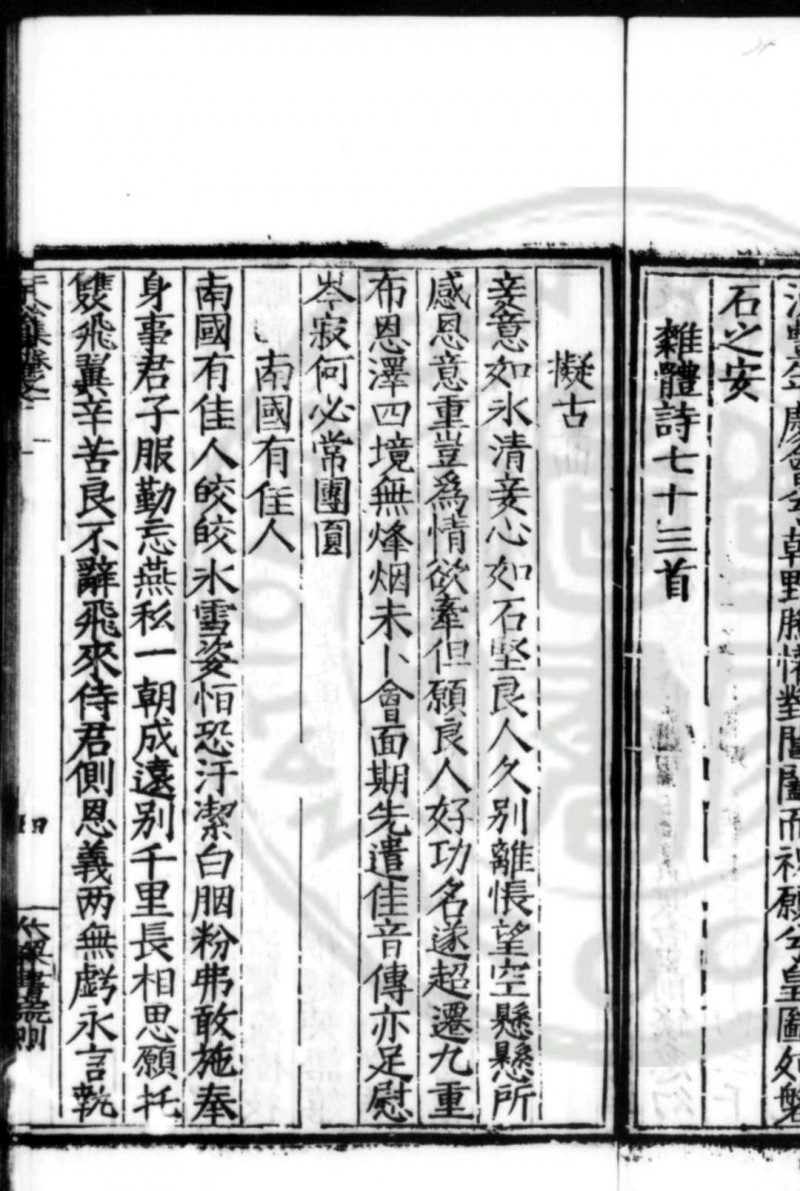 慶會兮朝野騰懽對閶闔而祝願兮皇圖如磐
石之安
雜體詩七十三首
擬古
妾意如氷清妾心如石堅良人久別離悵望空懸懸所
感恩意重豈爲情欲牽但願良人好功名遂超遷九重
布恩澤四境無烽烟未卜會面期先遣佳音傳亦足慰
岑寂何必常團圓
南國有佳人
南國有佳人皎皎氷雪姿怕恐汙潔白胭粉弗敢施奉
身事君子服勤忘燕私一朝成遠别千里長相思願托
雙飛翼辛苦良不辭飛來侍君側恩義两無虧永言執